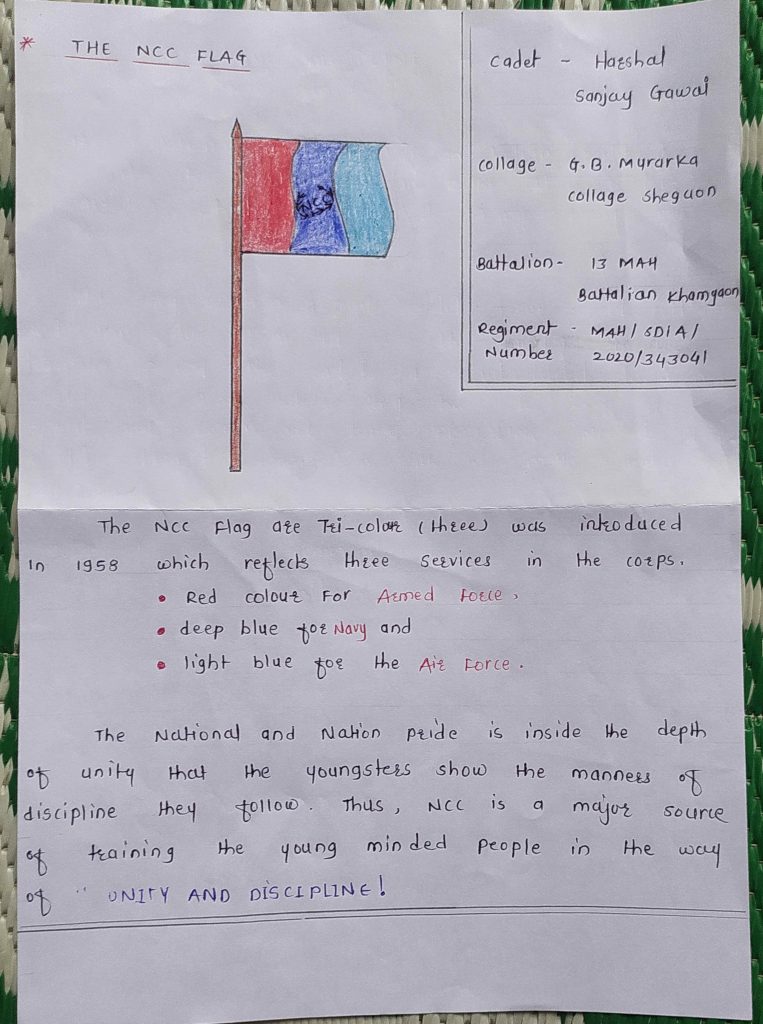 * THE NCC FLAG
NCC
Cadet - Harshal
Sanjay Gawai
Collage - G.B. Murarka
collage Shegaon
Battalion- 13 MAH
Battalian Khamgaon
Regiment - MAH/SDIA/
Number 2020/343041
The NCC Flag are Tri-colour (three) was introduced
In 1958 which reflects three services in the corps.
• Red colour For Armed Force,
• deep blue for Navy and
• light blue for the Air Force.
The National and Nation pride is inside the depth
of unity that the youngsters show the manners of
discipline they follow. Thus, NCC is a major source
of training the young minded people in the way
of " UNITY AND DISCIPLINE!